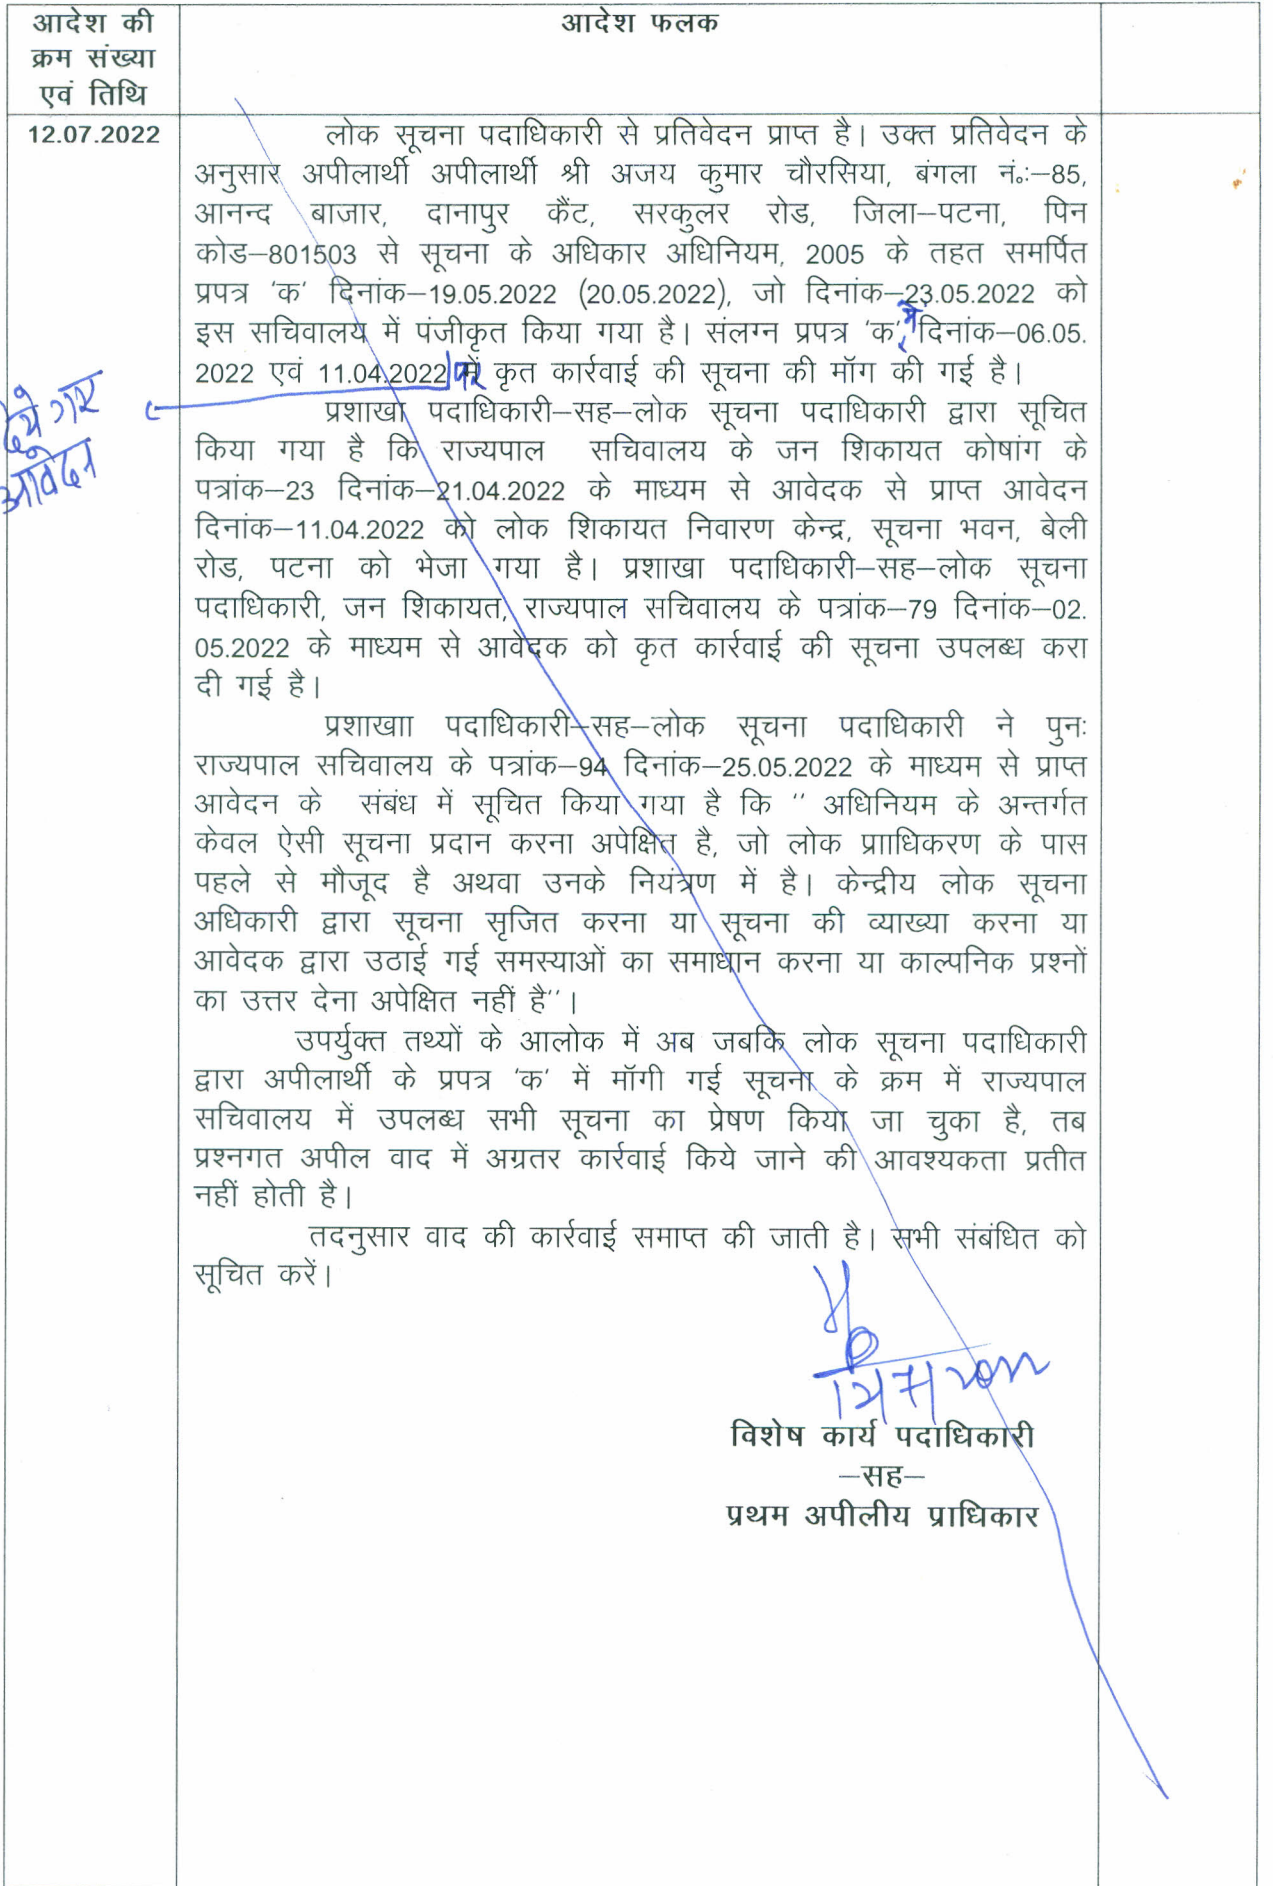 आदेश की
क्रम संख्या
एवं तिथि
आदेश फलक
12.07.2022
लोक सूचना पदाधिकारी से प्रतिवेदन प्राप्त है। उक्त प्रतिवेदन के
अनुसार अपीलार्थी अपीलार्थी श्री अजय कुमार चौरसिया, बंगला नं०:–85,
आनन्द बाजार, दानापुर कैंट, सरकुलर रोड, जिला–पटना, पिन
कोड–801503 से सूचना के अधिकार अधिनियम, 2005 के तहत समर्पित
प्रपत्र 'क' दिनांक–19.05.2022 (20.05.2022), जो दिनांक–23.05.2022 को
इस सचिवालय में पंजीकृत किया गया है। संलग्न प्रपत्र 'क' में दिनांक–06.05.
2022 एवं 11.04.2022 पर कृत कार्रवाई की सूचना की मॉग की गई है।
दिये गए
आवेदन
प्रशाखा पदाधिकारी–सह–लोक सूचना पदाधिकारी द्वारा सूचित
किया गया है कि राज्यपाल सचिवालय के जन शिकायत कोषांग के
पत्रांक–23 दिनांक–21.04.2022 के माध्यम से आवेदक से प्राप्त आवेदन
दिनांक–11.04.2022 को लोक शिकायत निवारण केन्द्र, सूचना भवन, बेली
रोड, पटना को भेजा गया है। प्रशाखा पदाधिकारी–सह–लोक सूचना
पदाधिकारी, जन शिकायत, राज्यपाल सचिवालय के पत्रांक–79 दिनांक–02.
05.2022 के माध्यम से आवेदक को कृत कार्रवाई की सूचना उपलब्ध करा
दी गई है।
प्रशाखाा पदाधिकारी–सह–लोक सूचना पदाधिकारी ने पुनः
राज्यपाल सचिवालय के पत्रांक–94 दिनांक–25.05.2022 के माध्यम से प्राप्त
आवेदन के संबंध में सूचित किया गया है कि '' अधिनियम के अन्तर्गत
केवल ऐसी सूचना प्रदान करना अपेक्षित है, जो लोक प्रााधिकरण के पास
पहले से मौजूद है अथवा उनके नियंत्रण में है। केन्द्रीय लोक सूचना
अधिकारी द्वारा सूचना सृजित करना या सूचना की व्याख्या करना या
आवेदक द्वारा उठाई गई समस्याओं का समाधान करना या काल्पनिक प्रश्नों
का उत्तर देना अपेक्षित नहीं है''।
उपर्युक्त तथ्यों के आलोक में अब जबकि लोक सूचना पदाधिकारी
द्वारा अपीलार्थी के प्रपत्र 'क' में मॉगी गई सूचना के क्रम में राज्यपाल
सचिवालय में उपलब्ध सभी सूचना का प्रेषण किया जा चुका है, तब
प्रश्नगत अपील वाद में अग्रतर कार्रवाई किये जाने की आवश्यकता प्रतीत
नहीं होती है।
तदनुसार वाद की कार्रवाई समाप्त की जाती है। सभी संबंधित को
सूचित करें।
विशेष कार्य पदाधिकारी
–सह–
प्रथम अपीलीय प्राधिकार